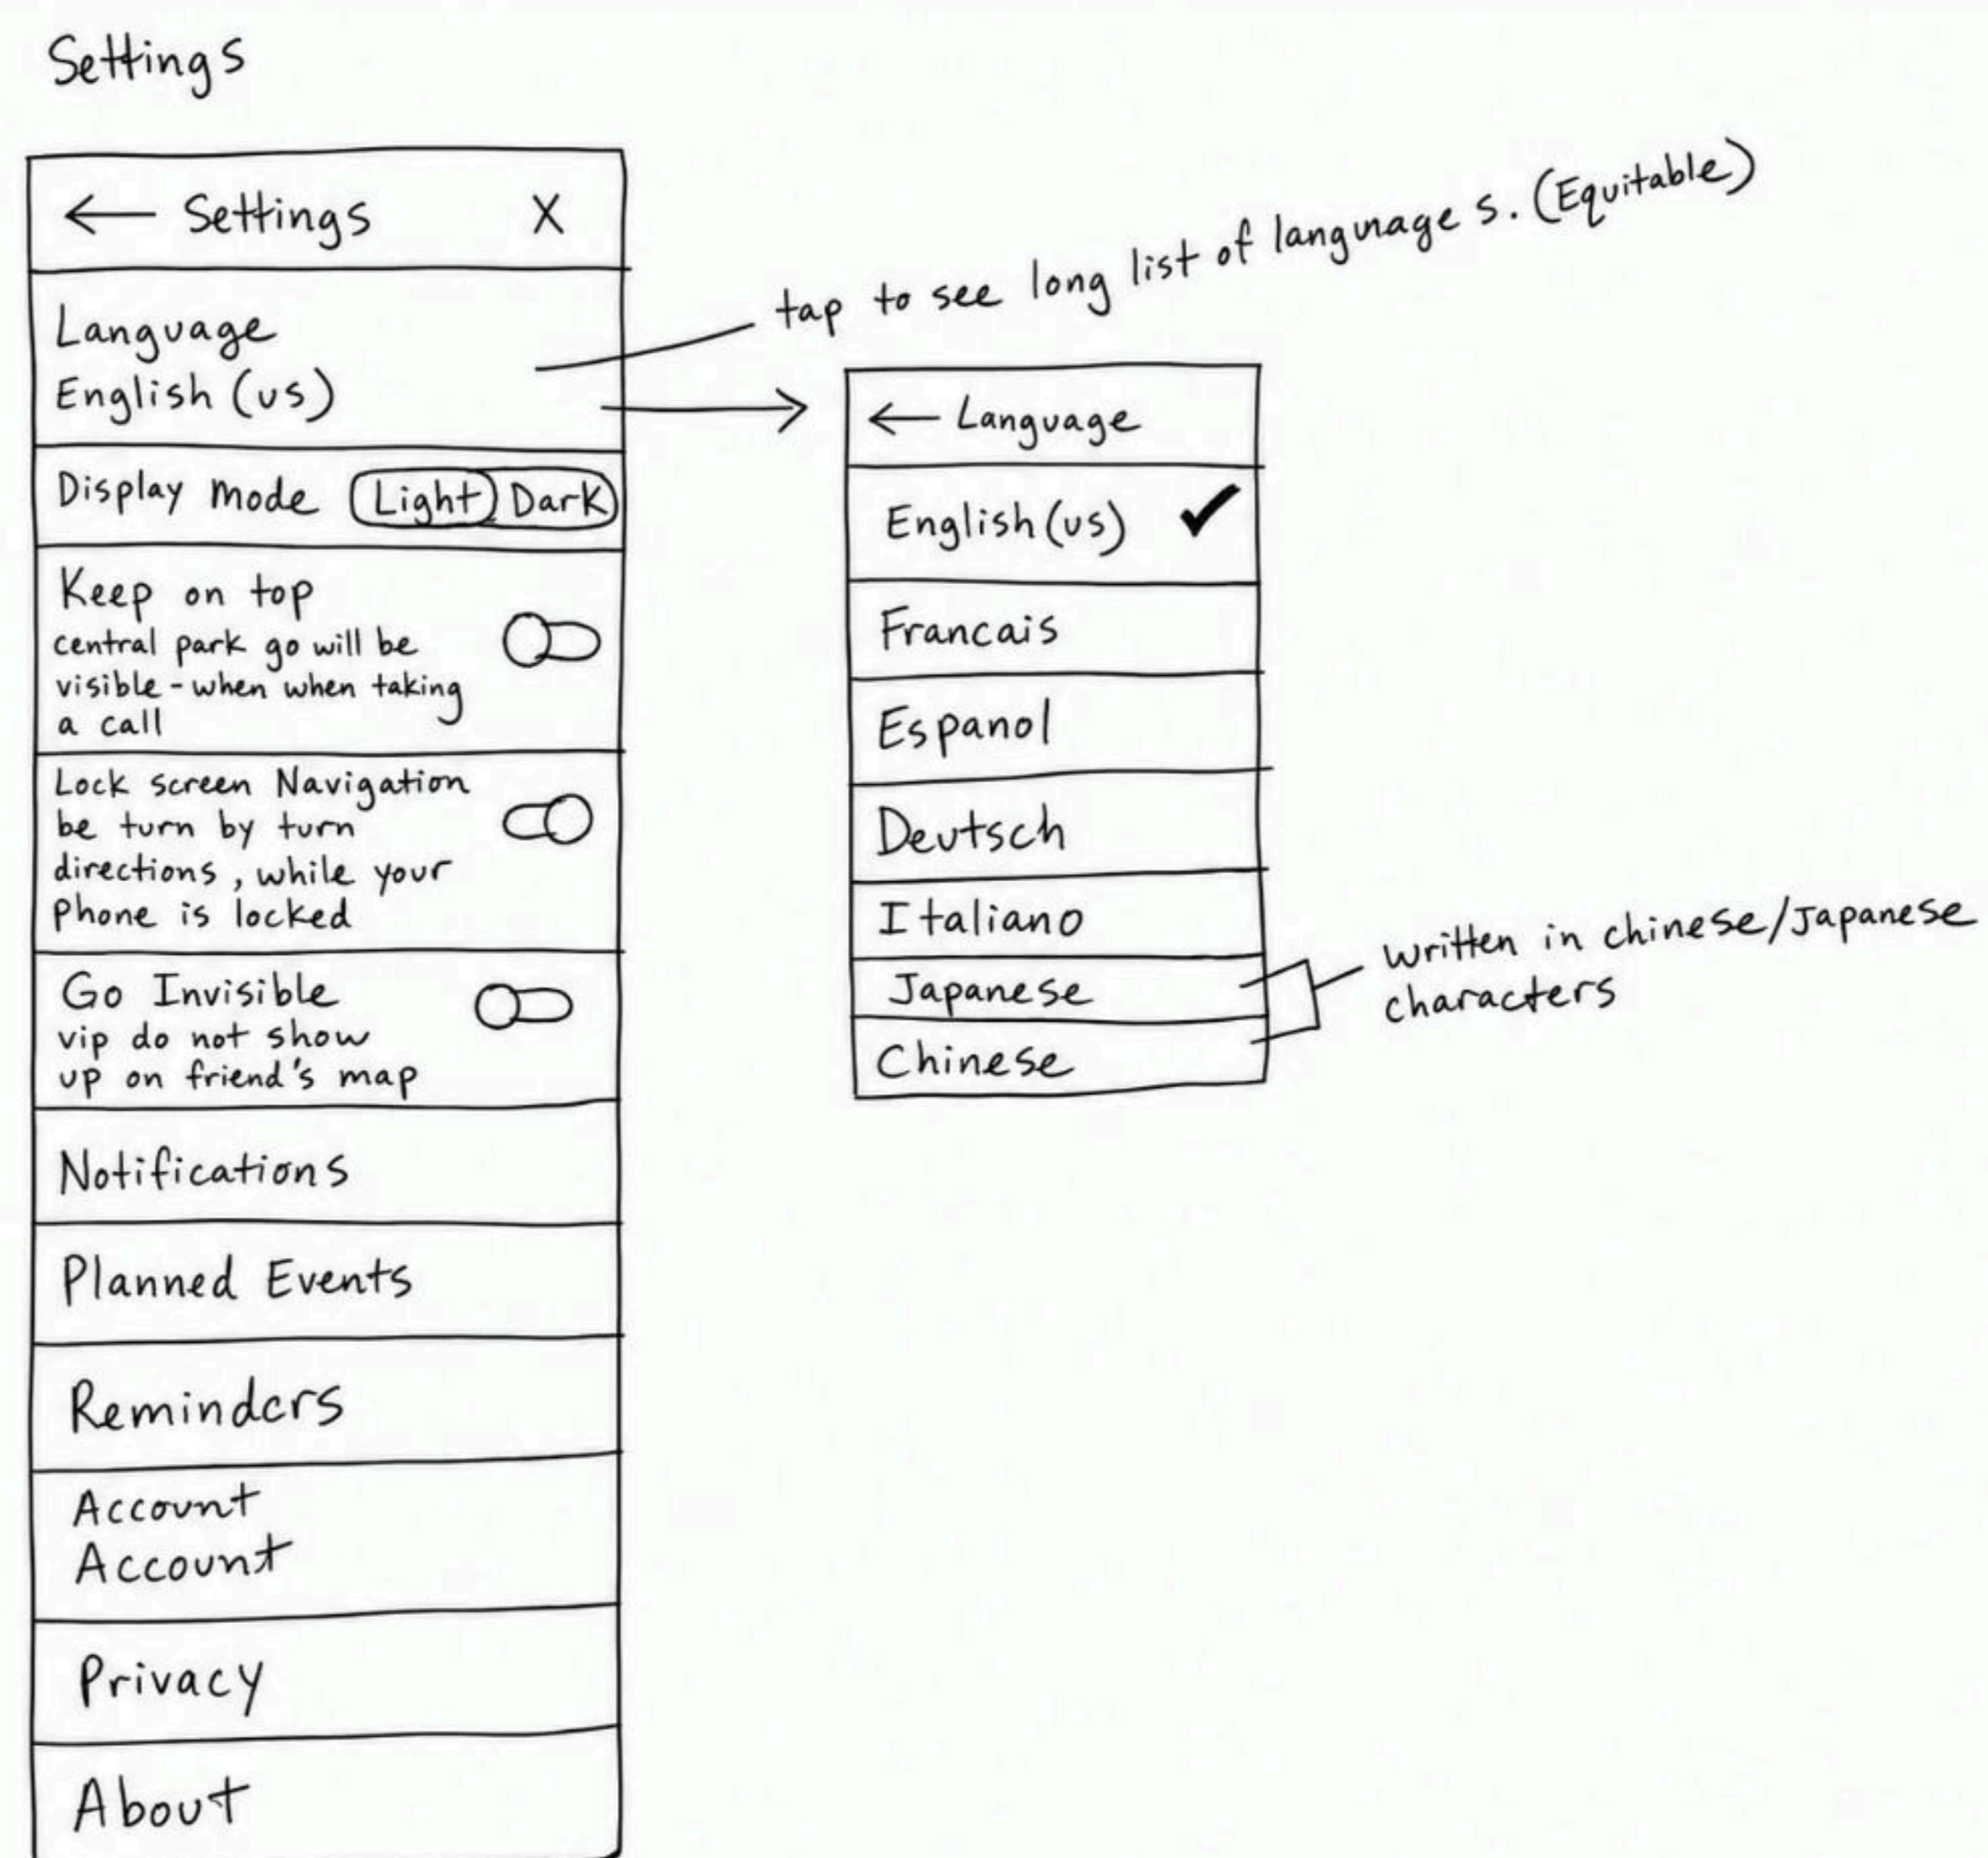 Settings
← Settings X
Language
English (us)
Display mode Light Dark
Keep on top
central park go will be
visible - when when taking
a call
Lock screen Navigation
be turn by turn
directions, while your
phone is locked
Go Invisible
vip do not show
up on friend's map
Notifications
Planned Events
Reminders
Account
Account
Privacy
About
tap to see long list of language s. (Equitable)
← Language
English (us) ✔
Francais
Espanol
Deutsch
Italiano
Japanese
Chinese
written in chinese/Japanese
characters